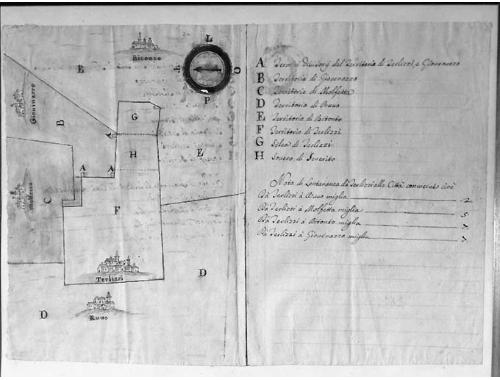 L
O
P
E
Bitonto
Giovinazzo
B
G
H
A A
C
E
F
Terlizzi
D
D
Ruvo
A Termini divisorij del Territorio di Terlizzi, e Giovenazzo
B Territorio di Giovenazzo
C Territorio di Molfetta
D Territorio di Ruvo
E Territorio di Bitonto
F Territorio di Terlizzi
G Selva di Terlizzi
H
Nota di Lontananza di Terlizzi alle Città
Da Terlizzi à Ruvo miglia 2
Da Terlizzi à Molfetta miglia 5
Da Terlizzi à Bitonto miglia
Da Terlizzi à Giovenazzo miglia